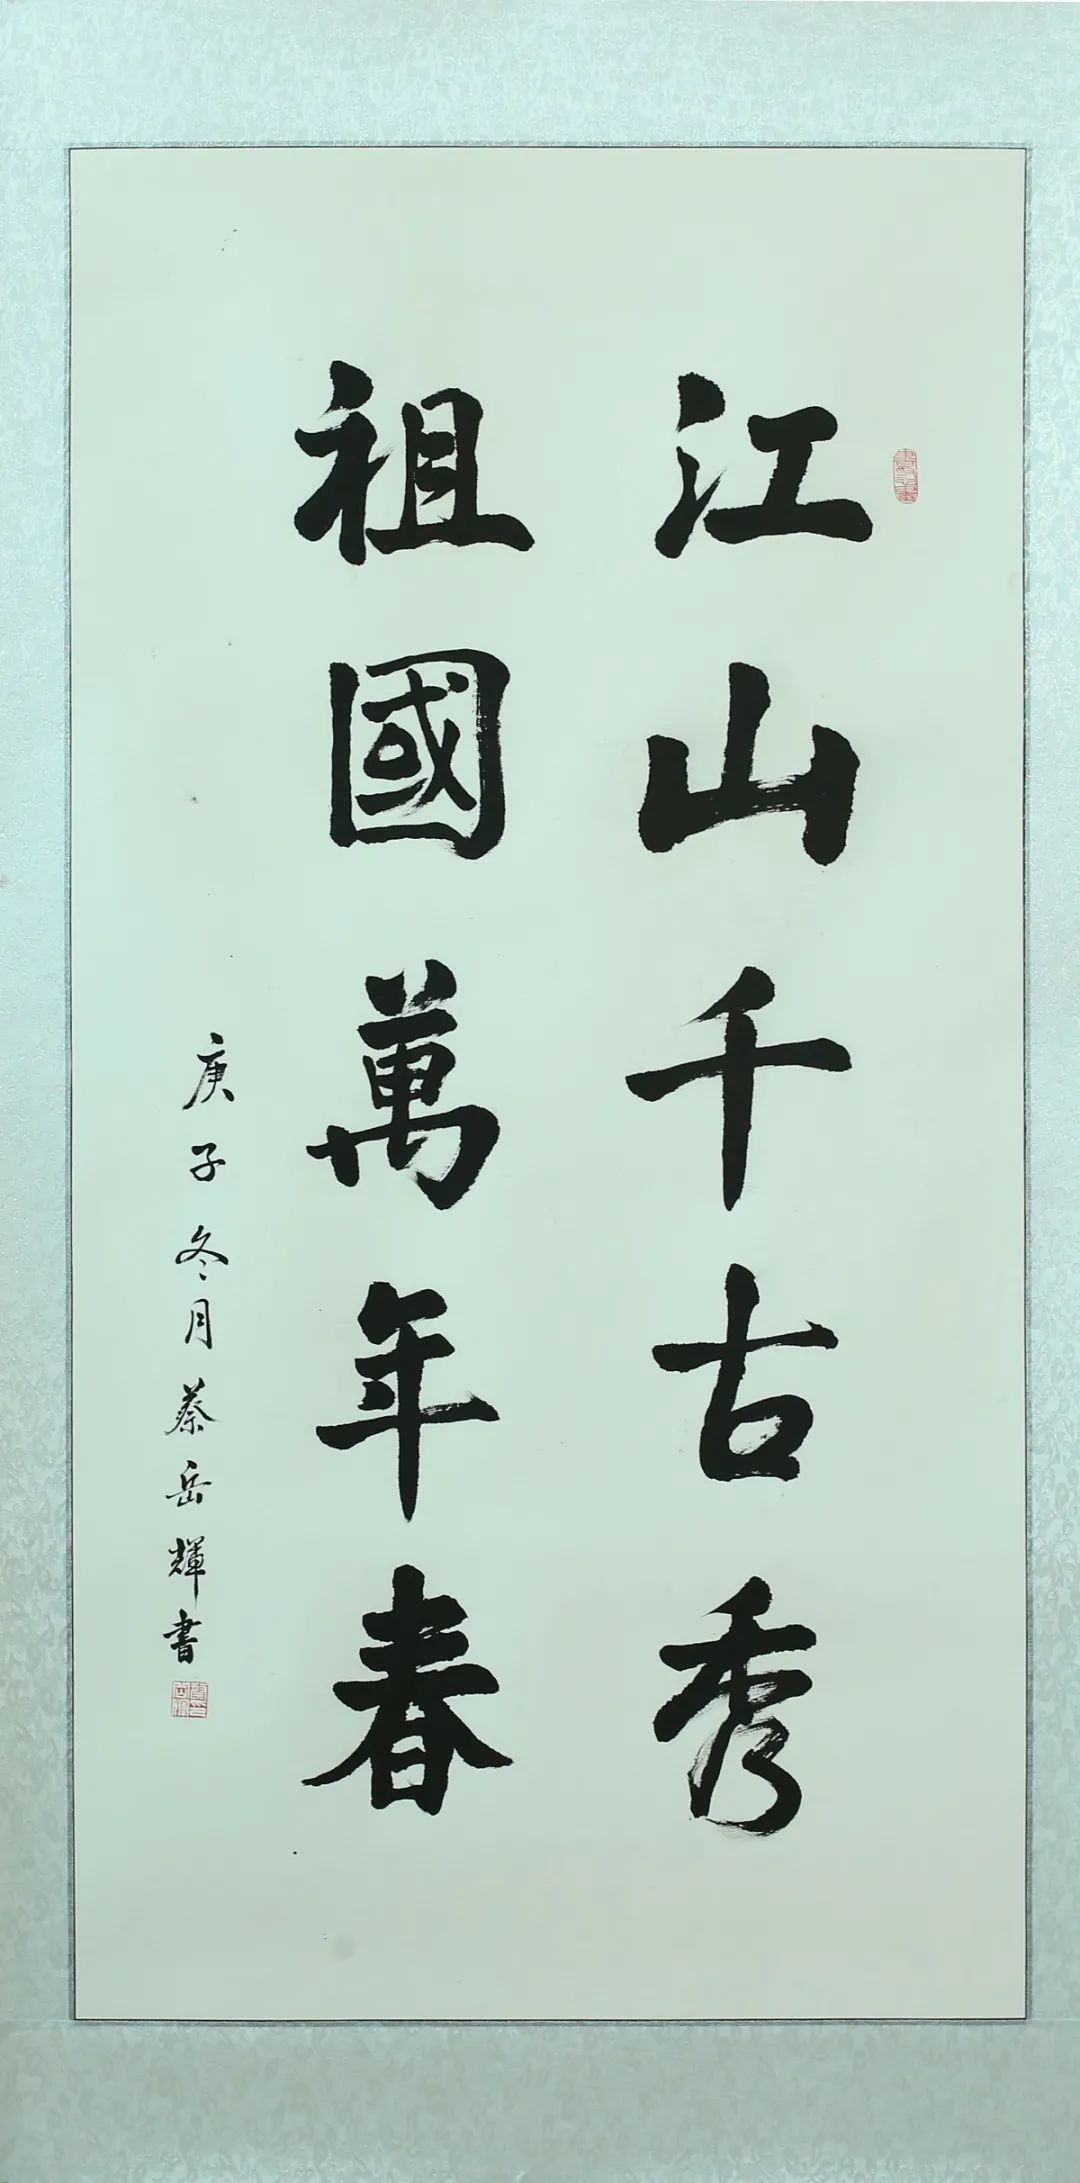 江山千古秀
祖國萬年春
庚子冬月蔡岳輝書